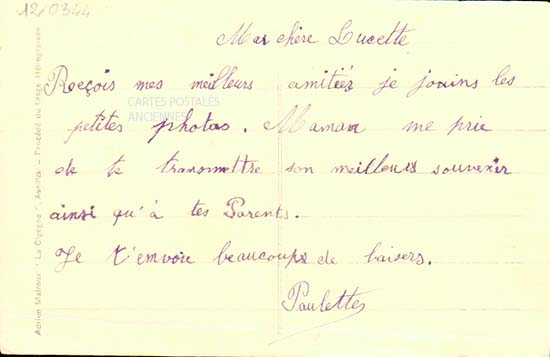 12/0344
Ma chère Lucette
Reçois mes meilleurs amitiés je joains les
petites photos. Maman me prie
de te transmettre son meilleurs souvenir
ainsi qu'à tes Parents.
Je t'envoie beaucoups de baisers.
Paulette
CARTES POSTALES
ANCIENNES
Adrien Malroux "La Cigogne", Aurillac - Procédé du tirage Héliogravure